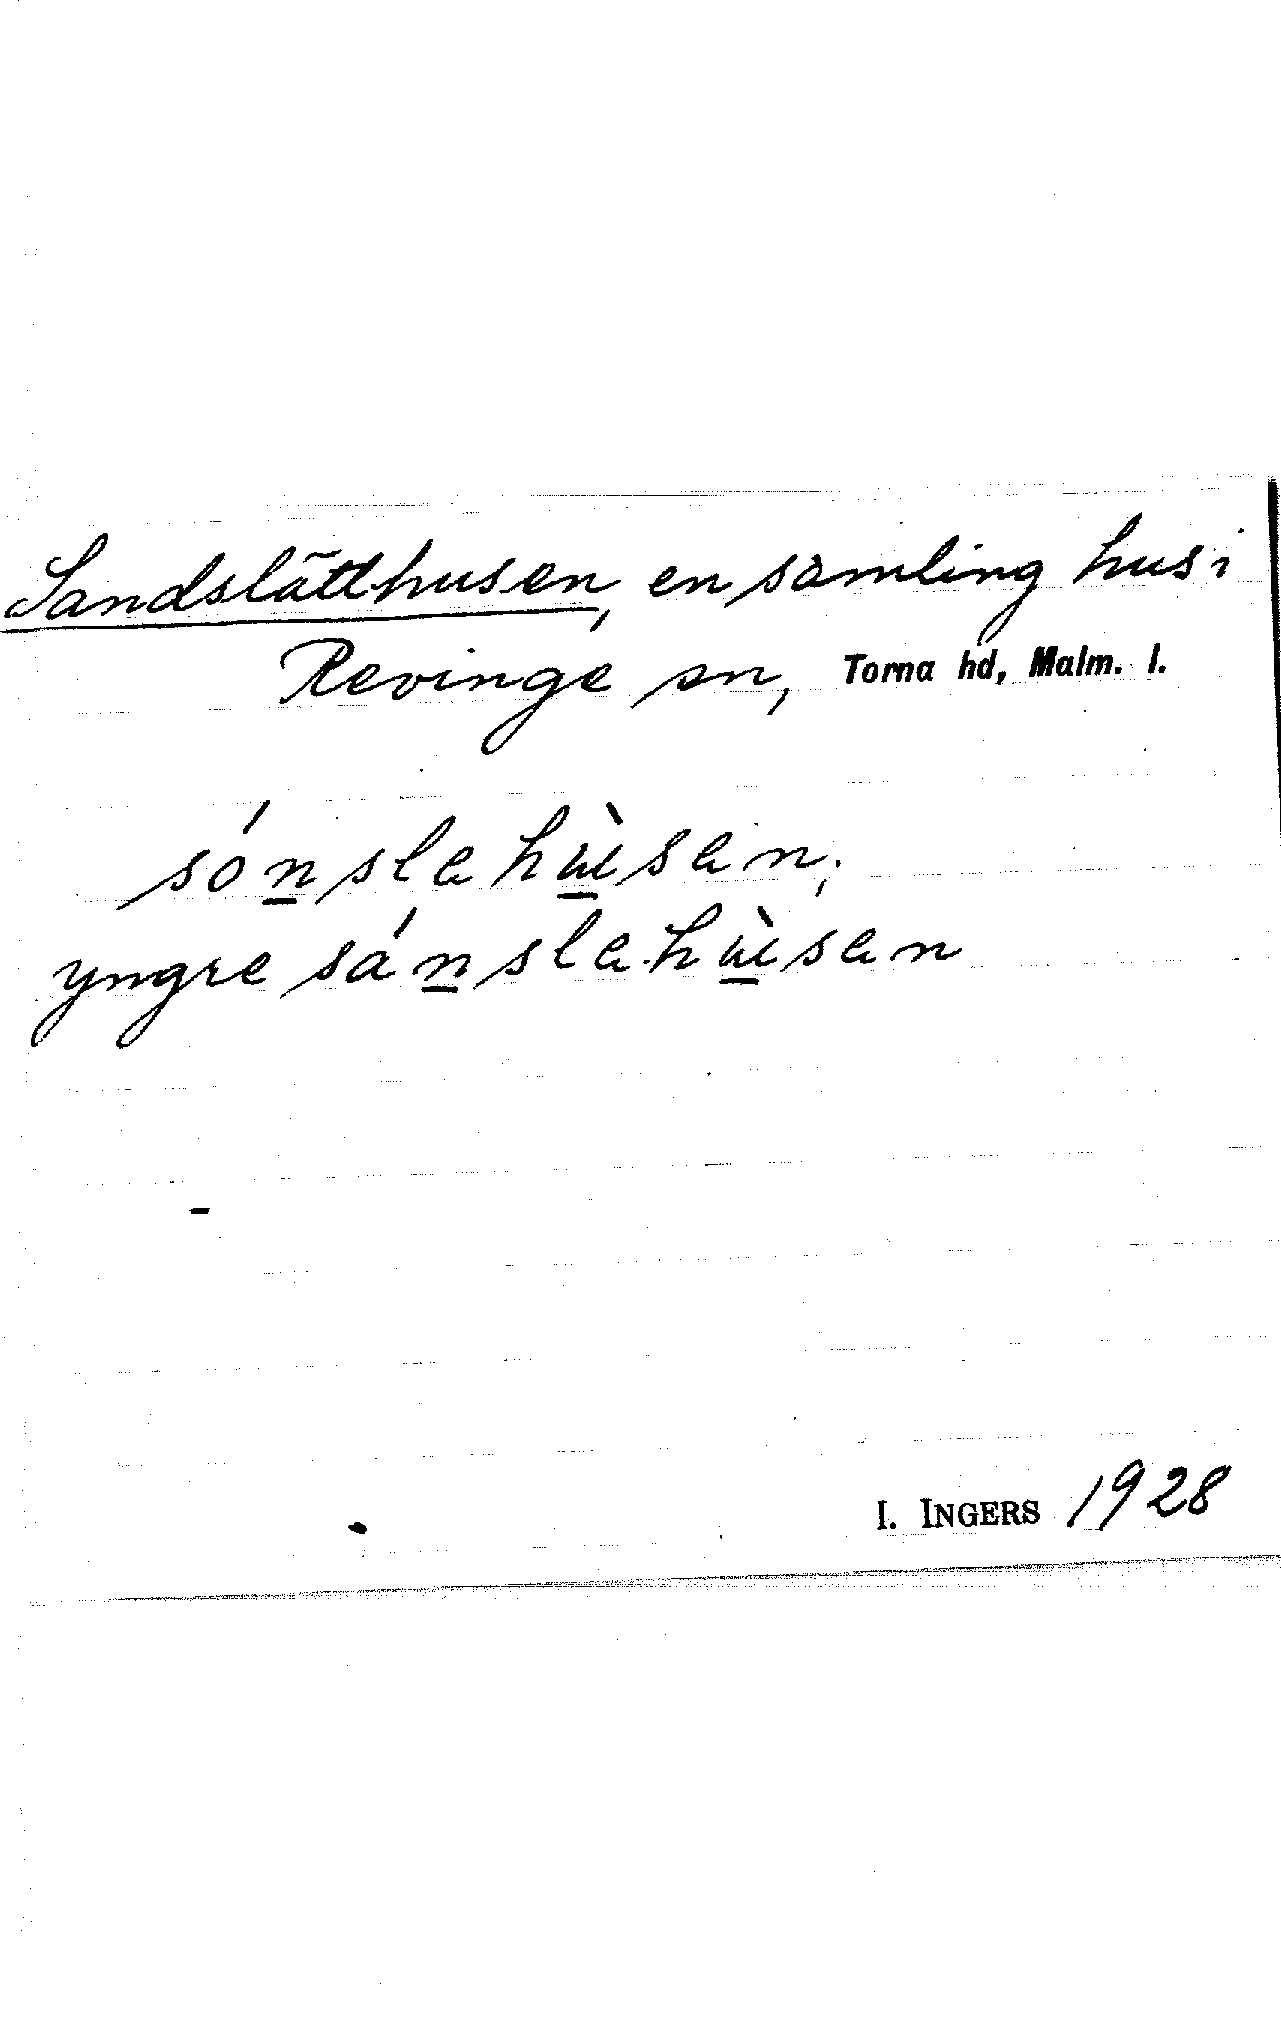 Sandslätthusen, en samling hus i
Revinge sn, Torna hd, Malm. l.
sónslahùsan;
yngre sánslahùsan
I. INGERS 1928